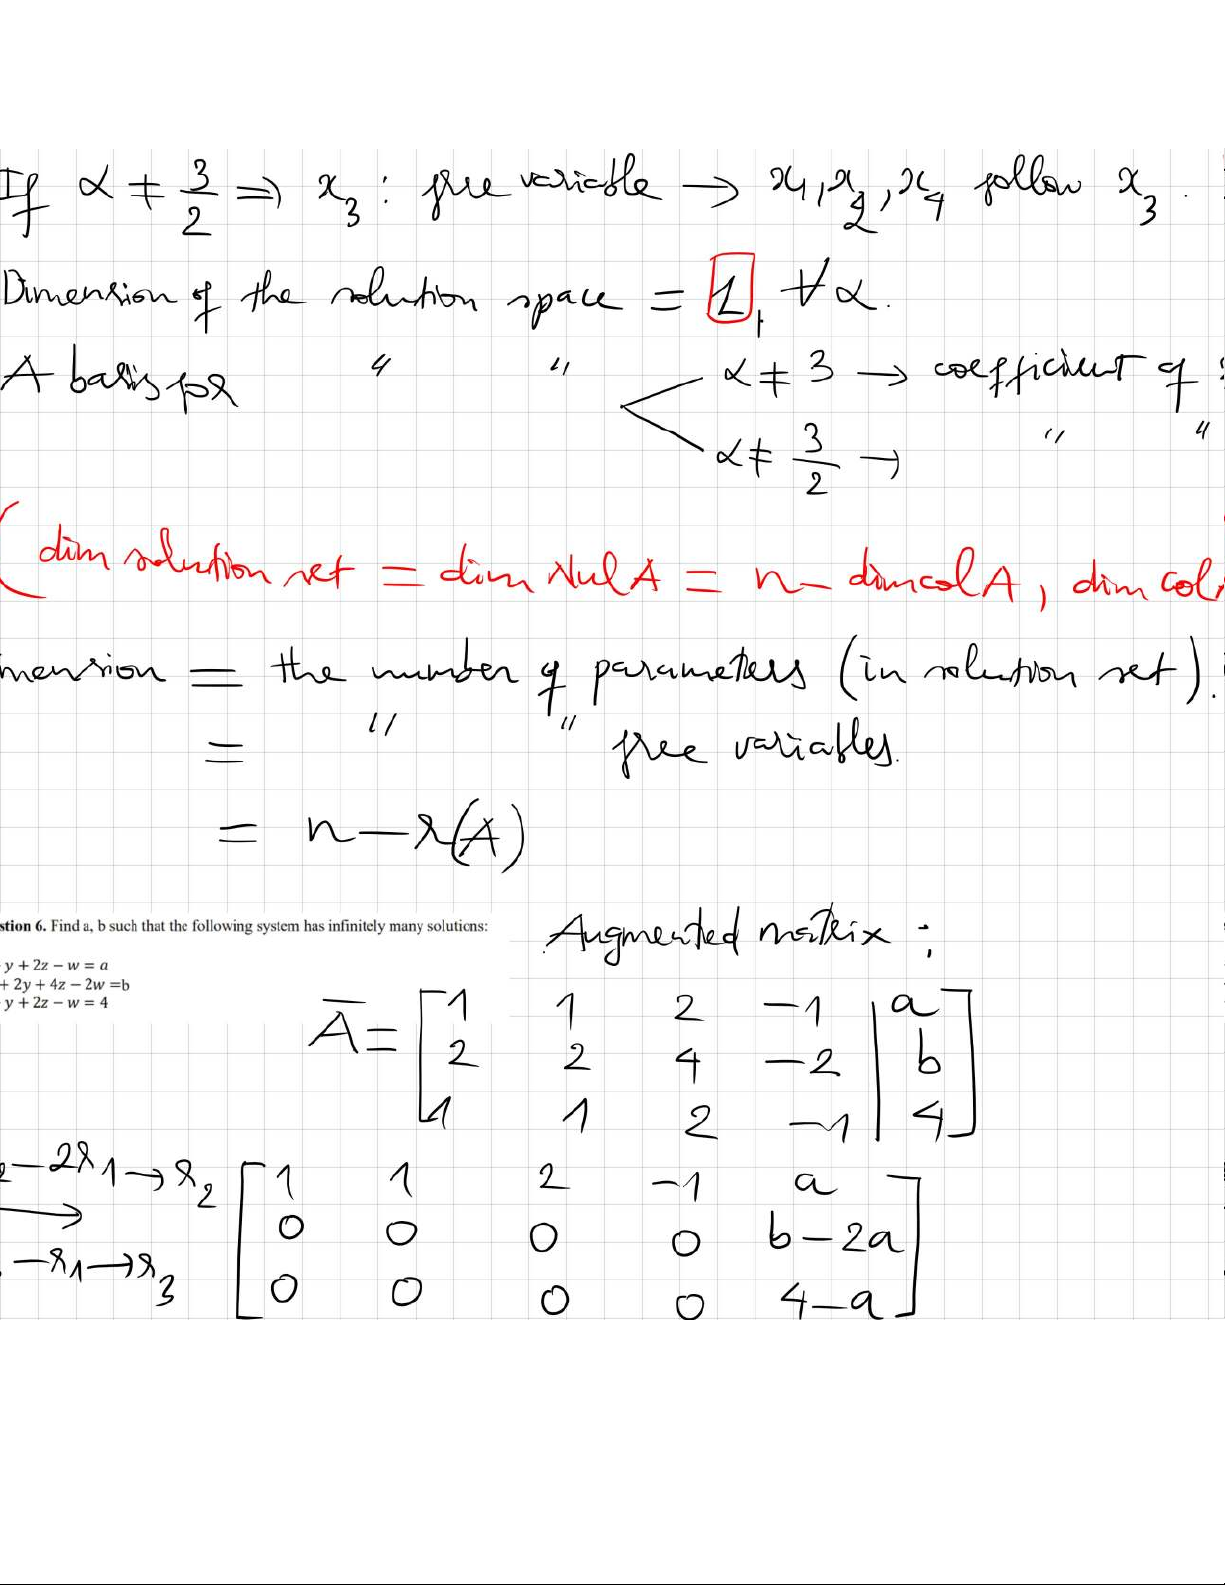 If α ≠ 3/2 ⇒ x₃ : free variable → x₁, x₂, x₄ follow x₃.
Dimension of the solution space = 1, ∀ α.
A basis for " " α ≠ 3 → coefficient of
α ≠ 3/2 → " "
( dim solution set = dim Nul A = n – dim col A, dim col
mension = the number of parameters (in solution set).
= " " free variables.
= n – r(A)
stion 6. Find a, b such that the following system has infinitely many solutions:
y + 2z − w = a
+ 2y + 4z − 2w =b
y + 2z − w = 4
Augmented matrix :
A̅ = [ 1 1 2 −1 | a ]
[ 2 2 4 −2 | b ]
[ 1 1 2 −1 | 4 ]
−2r₁ → r₂ [ 1 1 2 −1 a ]
→ [ 0 0 0 0 b − 2a ]
− r₁ → r₃ [ 0 0 0 0 4 − a ]